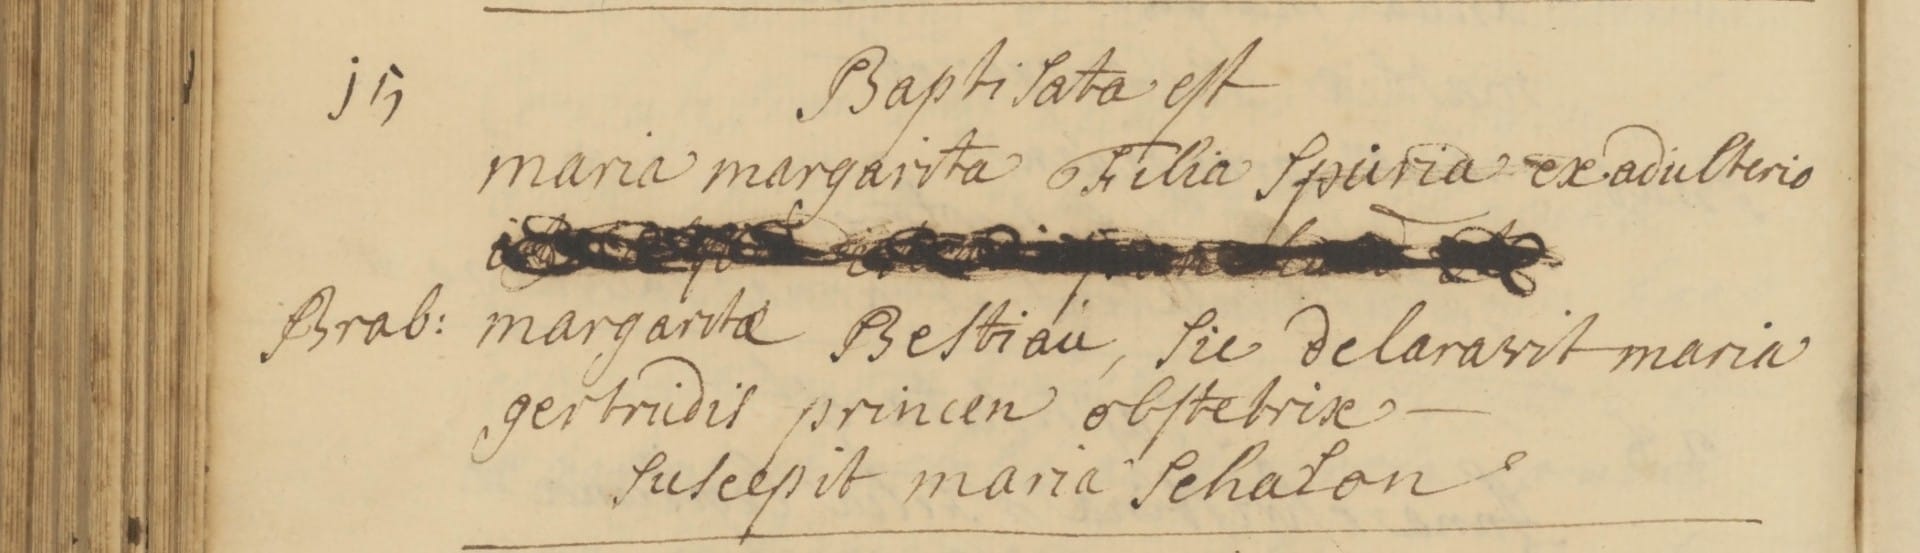 15 Baptisata est
maria margarita Filia Spuria ex adulterio
Brab: margaritæ Bestiau, sic delaravit maria
gertrudis princen obstetrix —
suscepit maria Schalon